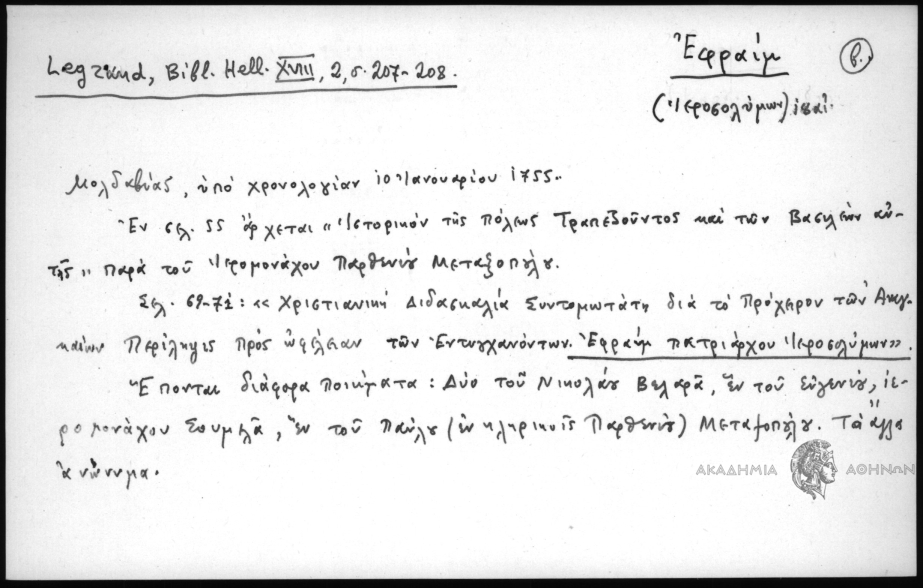 Ἐφραίμ β.
Legrand, Bibl. Hell. XVIII, 2, σ. 207-208.
(Ἱεροσολύμων)
Μολδαβίας, ὑπό χρονολογίαν 10 Ἰανουαρίου 1755.
Ἐν σελ. 55 ἄρχεται «Ἱστορικόν τῆς πόλεως Τραπεζοῦντος καί τῶν Βασιλέων αὐ-
τῆς» παρά τοῦ Ἱερομονάχου Παρθενίου Μεταξοπούλου.
Σελ. 69-72: «Χριστιανική Διδασκαλία Συντομωτάτη διά τό Πρόχειρον τῶν Αναγ-
καίων Περίληψις πρός ὠφέλειαν τῶν Ἐντυγχανόντων. Ἐφραίμ πατριάρχου Ἱεροσολύμων».
Ἕπονται διάφορα ποιήματα: Δύο τοῦ Νικολάου Βελαρᾶ, ἕν τοῦ Εὐγενίου, ἱε-
ρομονάχου Σουμελᾶ, ἕν τοῦ Παύλου (ἐν κληρικοῖς Παρθενίου) Μεταξοπούλου. Τά ἄλλα
ἀνώνυμα.
ΑΚΑΔΗΜΙΑ ΑΘΗΝΩΝ